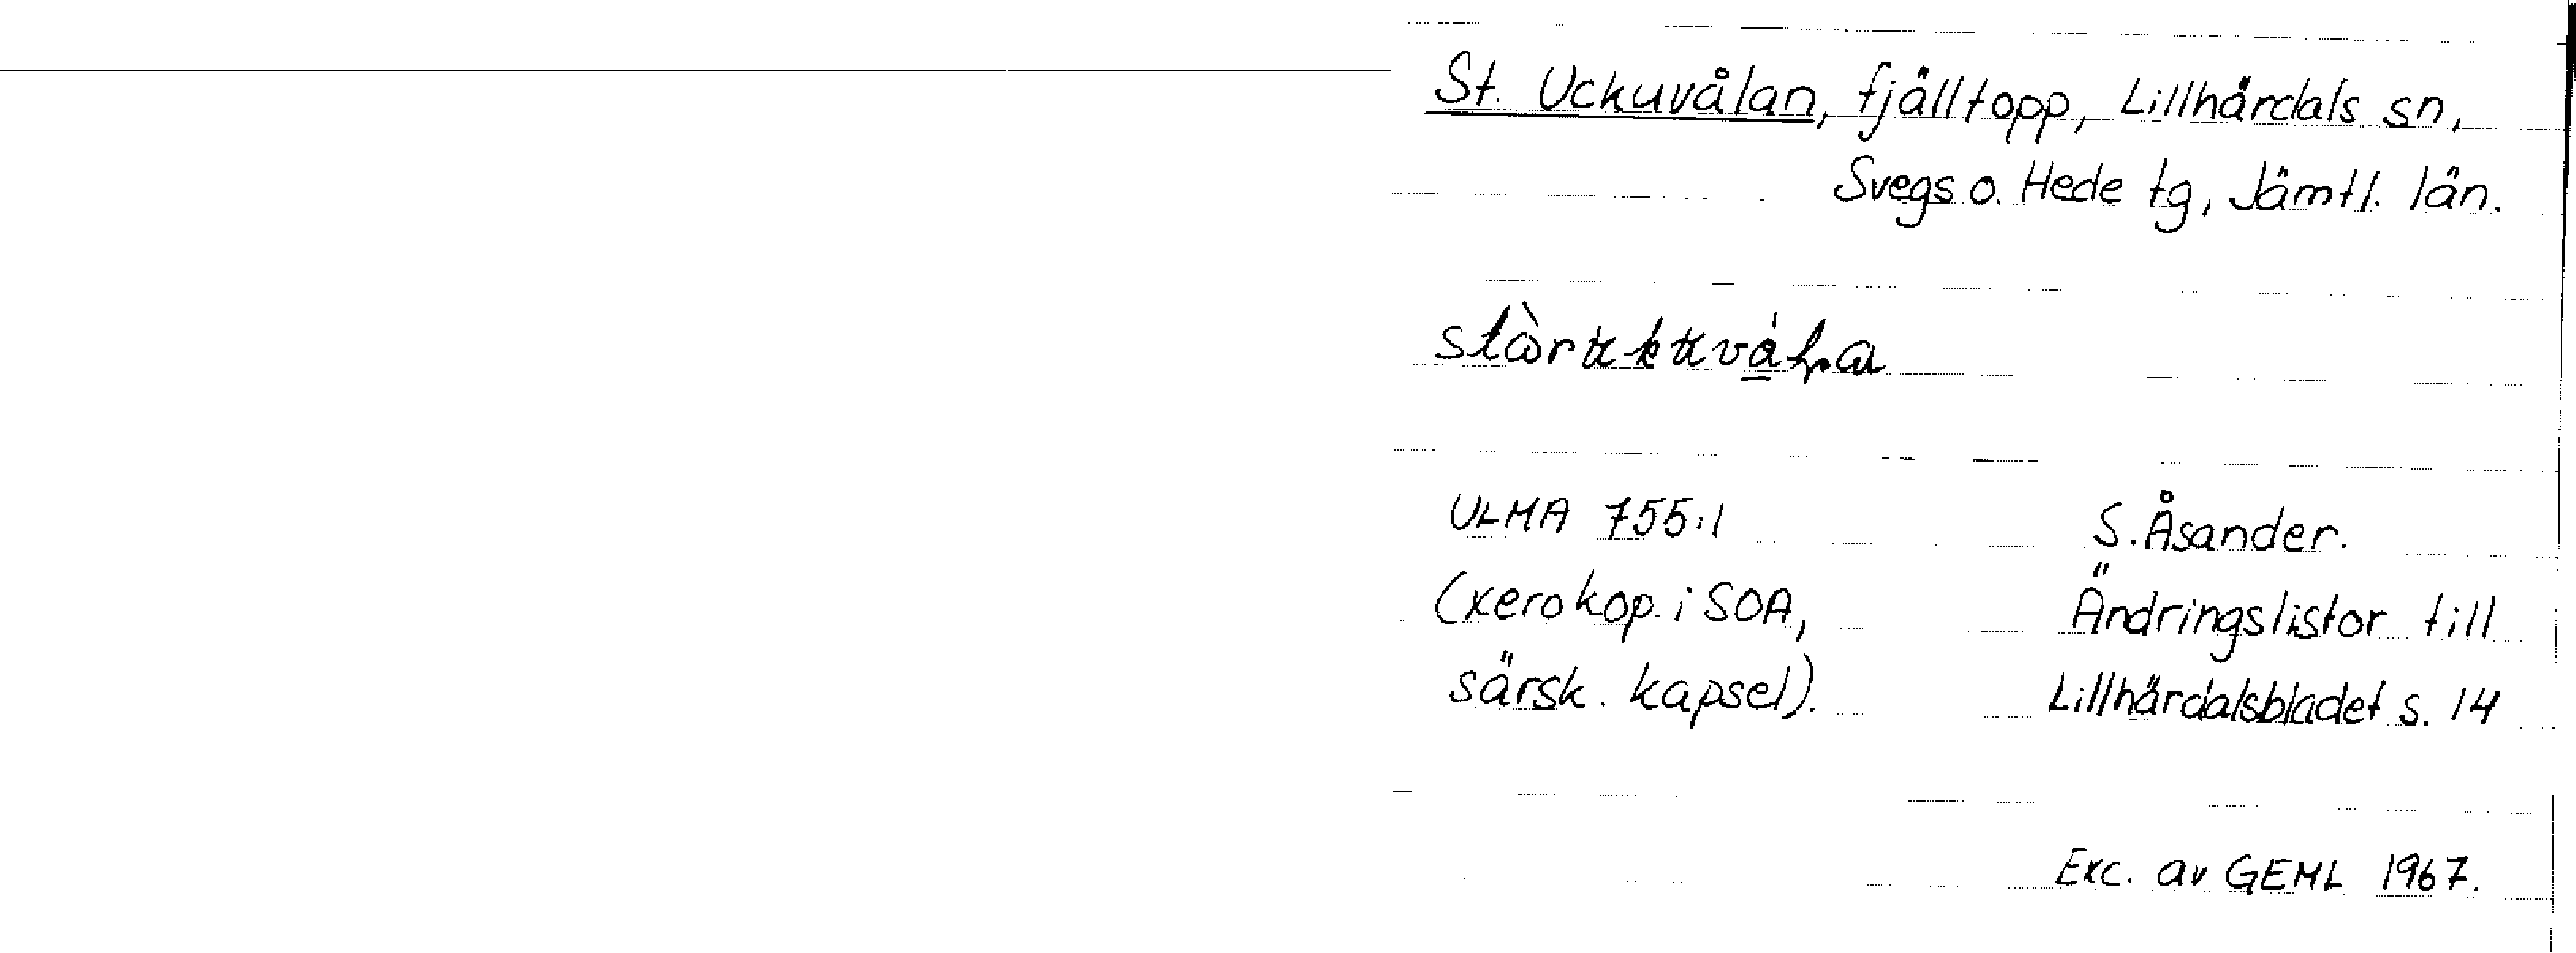 St. Uckuvålan, fjälltopp, Lillhärdals sn,
Svegs o. Hede tg, Jämtl. län.
ULMA 755:1
S. Åsander.
(xerokop. i SOA,
Ändringslistor till
särsk. kapsel).
Lillhärdalsbladet s. 14
Exc. av GEML 1967.